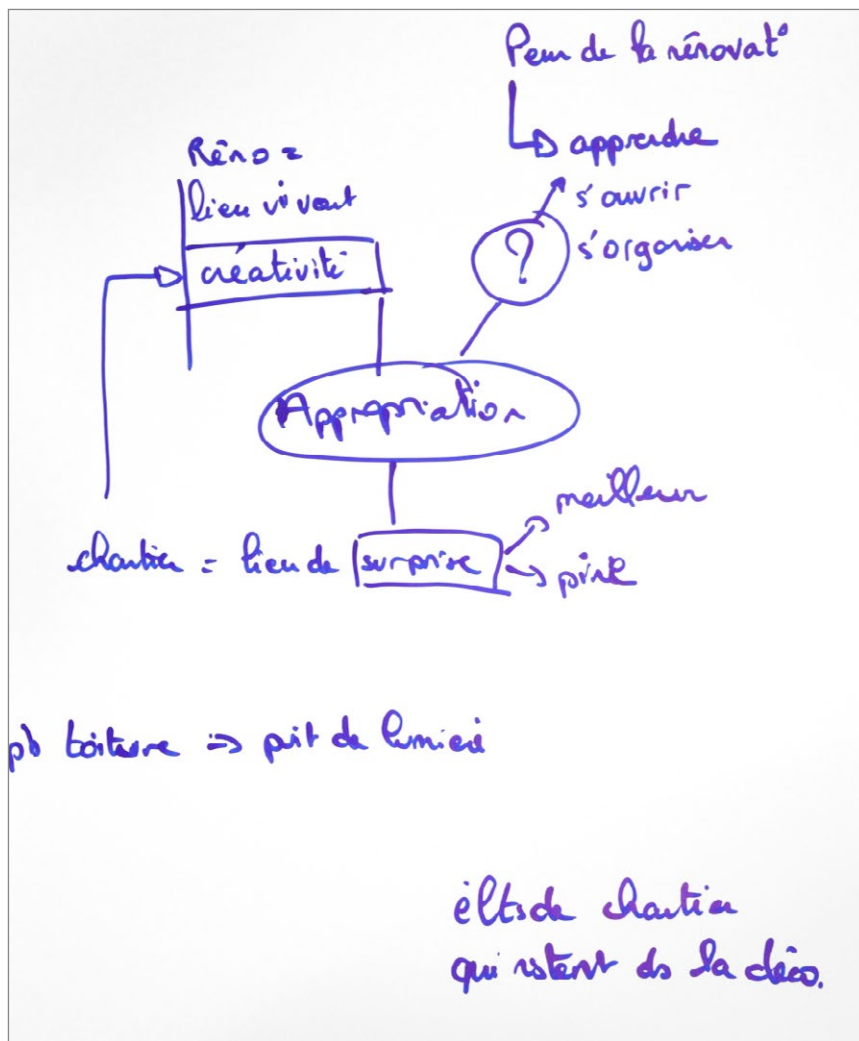 Peur de la rénovat°
apprendre
s'ouvrir
s'organiser
?
Réno =
lieu vivant
créativité
Appropriation
chantier = lieu de surprise
meilleur
pire
pb toiture => puit de lumière
élts de chantier
qui restent ds la déco.